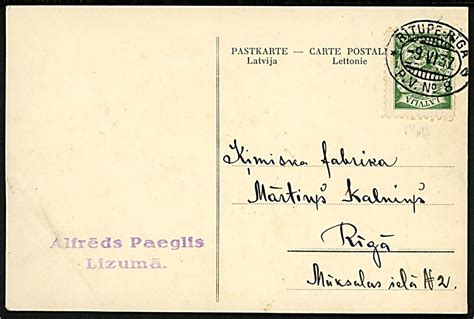 PASTKARTE — CARTE POSTALE
Latvija Lettonie
RITUPE-RĪGA
-9.VI.37.
P.V. Nº 8
LATVIJA
Ķīmiska fabrika
Mārtiņš Kalniņš
Rīgā
Mūksalas ielā №2.
Alfrēds Paeglis
Lizumā.